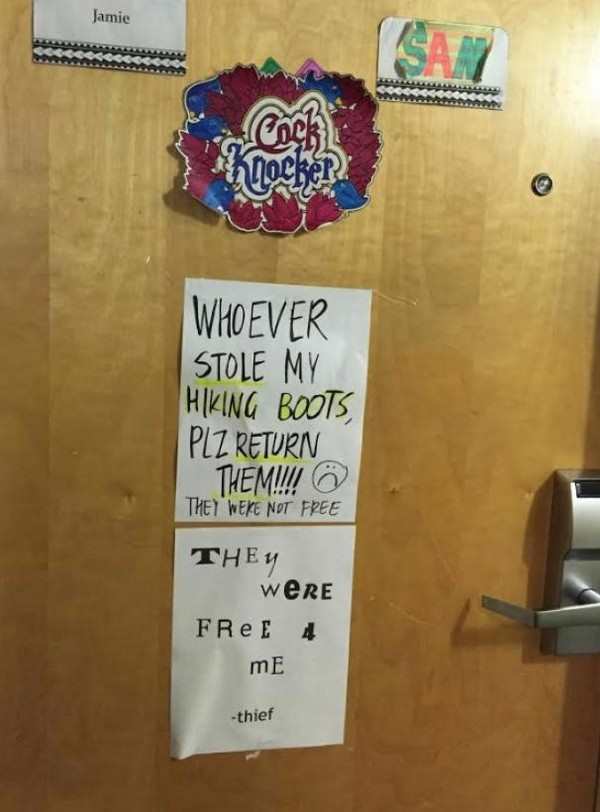 Jamie
SAM
Cock
Knocker
WHOEVER
STOLE MY
HIKING BOOTS,
PLZ RETURN
THEM!!!!
THEY WERE NOT FREE
THEy
weRE
FReE 4
mE
-thief